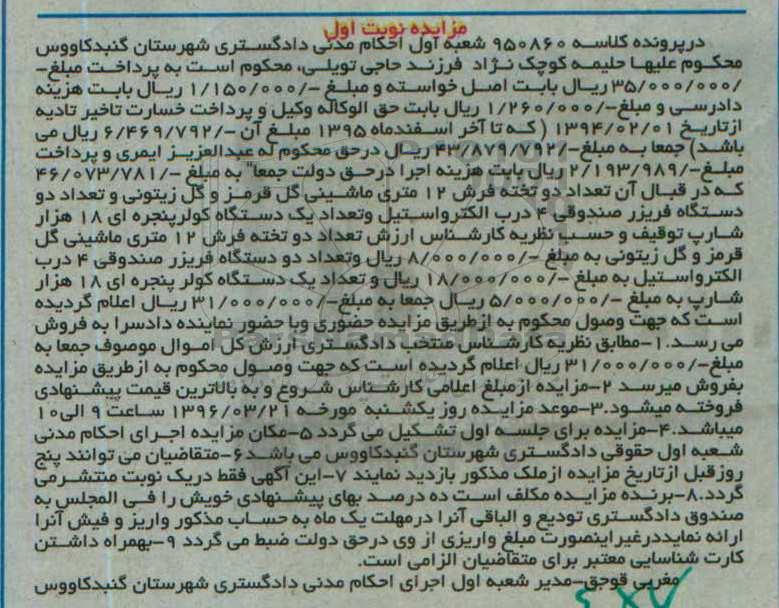 مزایده نوبت اول
درپرونده کلاسه ۹۵۰۸۶۰ شعبه اول احکام مدنی دادگستری شهرستان گنبدکاووس
محکوم علیها حلیمه کوچک نژاد فرزند حاجی تویلی، محکوم است به پرداخت مبلغ-
/۳۵/۰۰۰/۰۰۰ ریال بابت اصل خواسته و مبلغ -/۱/۱۵۰/۰۰۰ ریال بابت هزینه
دادرسی و مبلغ-/۱/۲۶۰/۰۰۰ ریال بابت حق الوکاله وکیل و پرداخت خسارت تاخیر تادیه
ازتاریخ ۱۳۹۴/۰۲/۰۱ ( که تا آخر اسفندماه ۱۳۹۵ مبلغ آن -/۶/۴۶۹/۷۹۲ ریال می
باشد) جمعا به مبلغ-/۴۳/۸۷۹/۷۹۲ ریال درحق محکوم له عبدالعزیز ایمری و پرداخت
مبلغ-/۲/۱۹۳/۹۸۹ ریال بابت هزینه اجرا درحق دولت جمعا" به مبلغ -/۴۶/۰۷۳/۷۸۱
که در قبال آن تعداد دو تخته فرش ۱۲ متری ماشینی گل قرمز و گل زیتونی و تعداد دو
دستگاه فریزر صندوقی ۴ درب الکترواستیل وتعداد یک دستگاه کولرپنجره ای ۱۸ هزار
شارپ توقیف و حسب نظریه کارشناس ارزش تعداد دو تخته فرش ۱۲ متری ماشینی گل
قرمز و گل زیتونی به مبلغ -/۸/۰۰۰/۰۰۰ ریال وتعداد دو دستگاه فریزر صندوقی ۴ درب
الکترواستیل به مبلغ -/۱۸/۰۰۰/۰۰۰ ریال و تعداد یک دستگاه کولر پنجره ای ۱۸ هزار
شارپ به مبلغ -/۵/۰۰۰/۰۰۰ ریال جمعا به مبلغ-/۳۱/۰۰۰/۰۰۰ ریال اعلام گردیده
است که جهت وصول محکوم به ازطریق مزایده حضوری وبا حضور نماینده دادسرا به فروش
می رسد.۱-مطابق نظریه کارشناس منتخب دادگستری ارزش کل اموال موصوف جمعا به
مبلغ-/۳۱/۰۰۰/۰۰۰ ریال اعلام گردیده است که جهت وصول محکوم به ازطریق مزایده
بفروش میرسد ۲-مزایده ازمبلغ اعلامی کارشناس شروع و به بالاترین قیمت پیشنهادی
فروخته میشود.۳-موعد مزایده روز یکشنبه مورخه ۱۳۹۶/۰۳/۲۱ ساعت ۹ الی۱۰
میباشد.۴-مزایده برای جلسه اول تشکیل می گردد ۵-مکان مزایده اجرای احکام مدنی
شعبه اول حقوقی دادگستری شهرستان گنبدکاووس می باشد۶-متقاضیان می توانند پنج
روزقبل ازتاریخ مزایده ازملک مذکور بازدید نمایند ۷-این آگهی فقط دریک نوبت منتشرمی
گردد.۸-برنده مزایده مکلف است ده درصد بهای پیشنهادی خویش را فی المجلس به
صندوق دادگستری تودیع و الباقی آنرا درمهلت یک ماه به حساب مذکور واریز و فیش آنرا
ارائه نمایددرغیراینصورت مبلغ واریزی از وی درحق دولت ضبط می گردد ۹-بهمراه داشتن
کارت شناسایی معتبر برای متقاضیان الزامی است.
مغربی قوجق-مدیر شعبه اول اجرای احکام مدنی دادگستری شهرستان گنبدکاووس